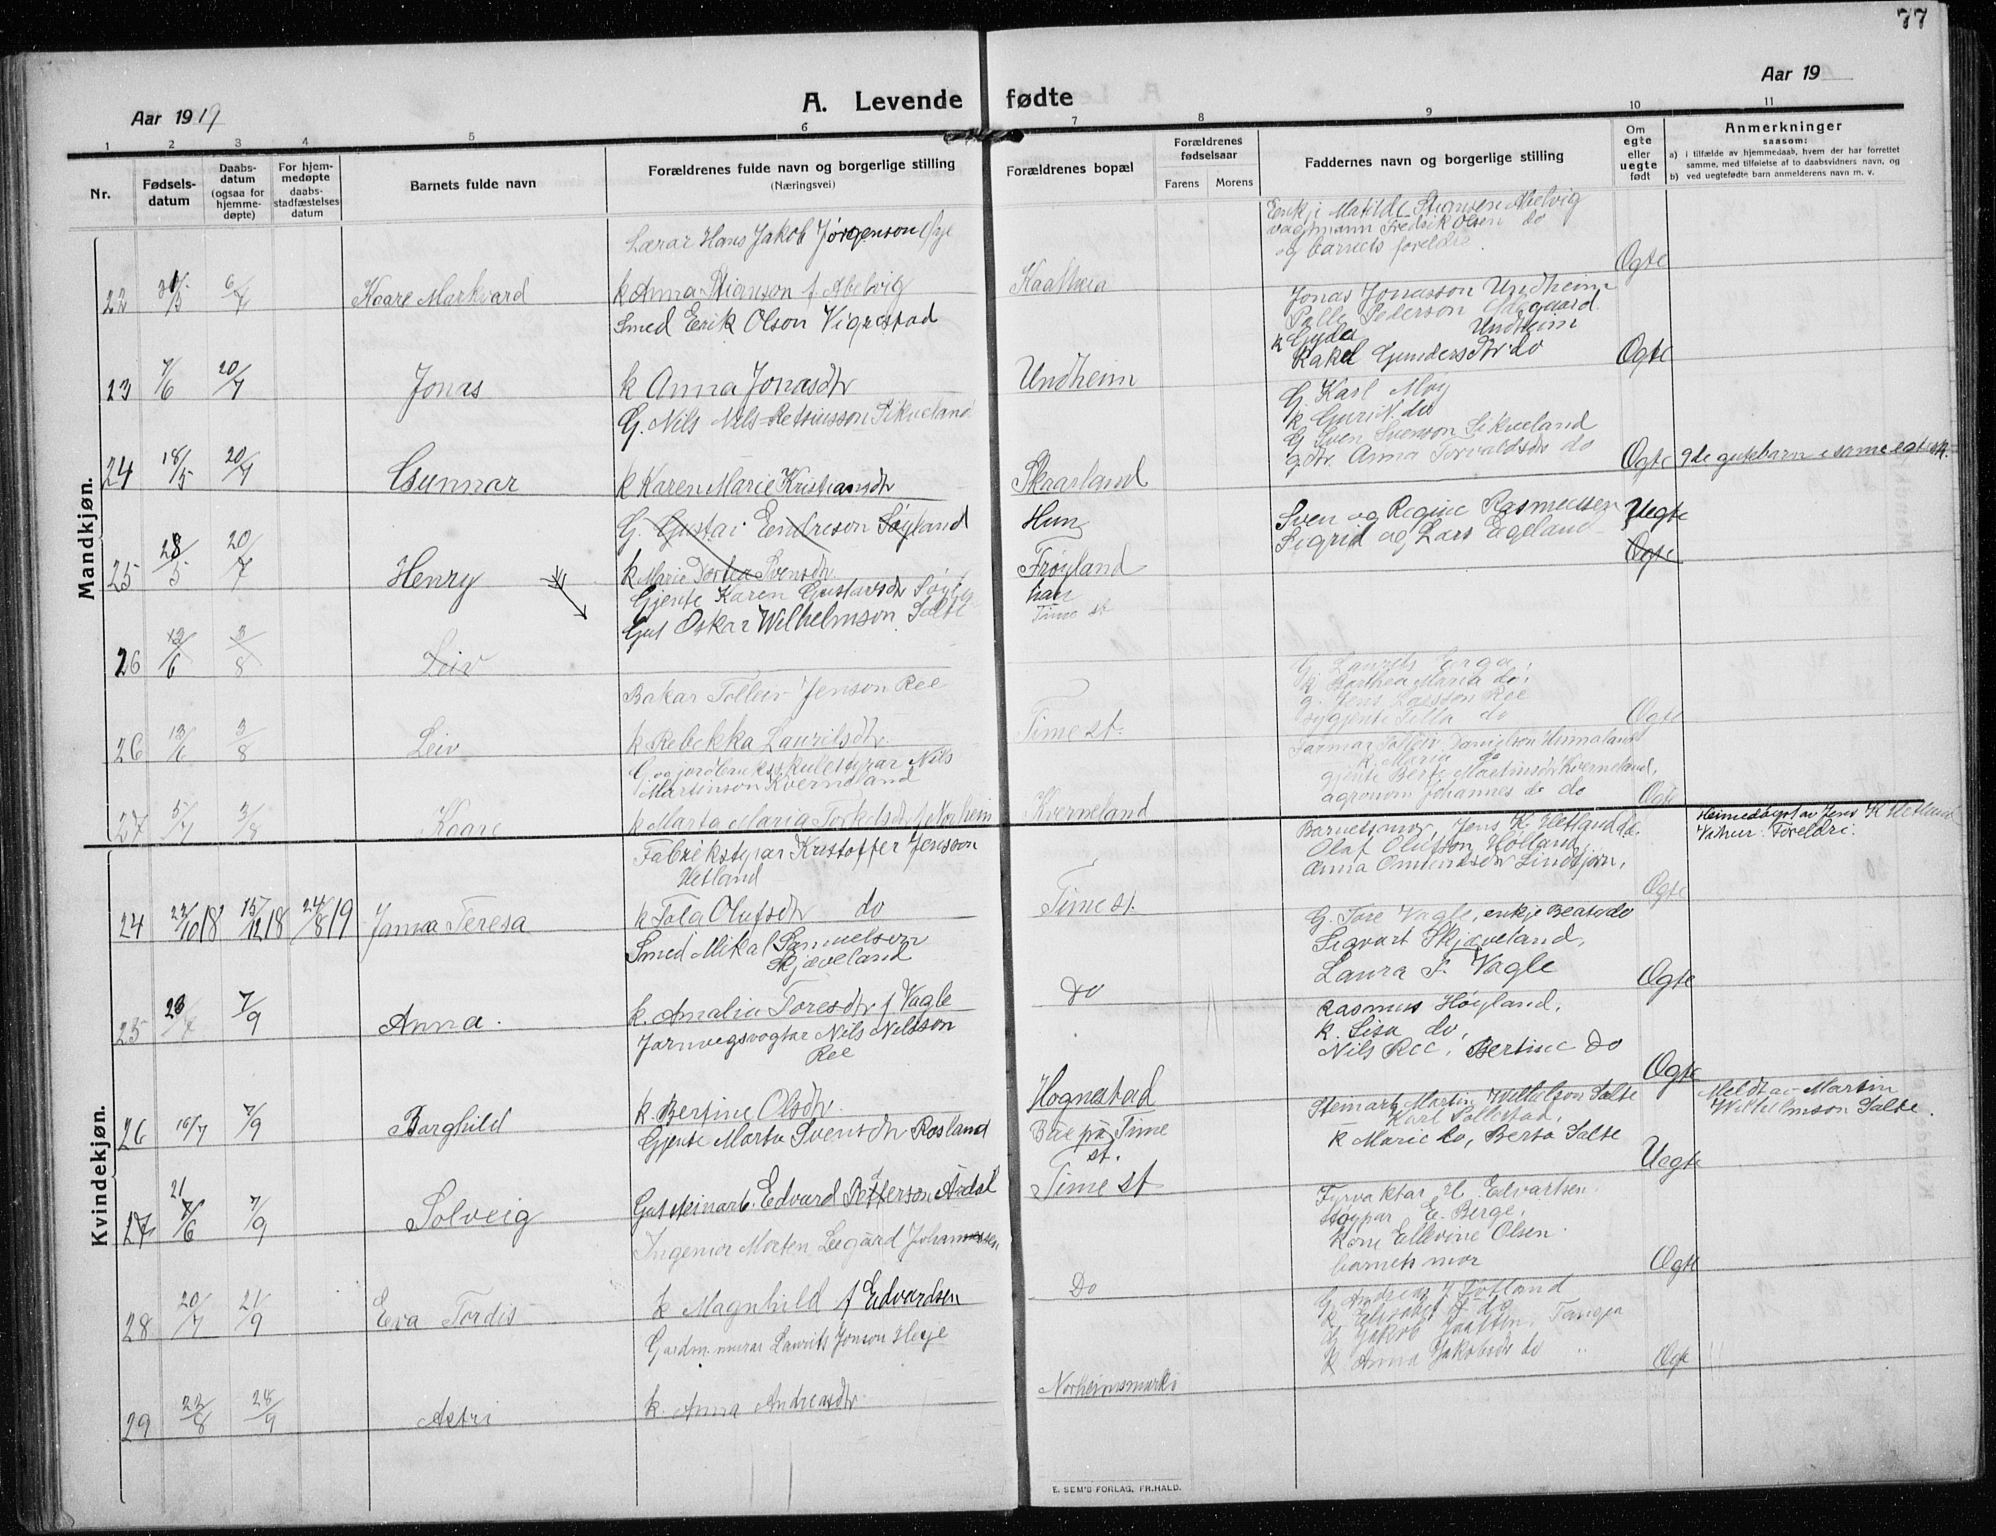 77
Aar 1919
A. Levende fødte
Aar 19
1 2 3 4 5 6 7 8 9 10 11
Nr.
Fødsels-
datum
Daabs-
datum
(ogsaa for
hjemme-
døpte)
For hjem-
medøpte
daabs-
stadfæstelses
datum
Barnets fulde navn
Forældrenes fulde navn og borgerlige stilling
(Næringsvei)
Forældrenes bopæl
Forældrenes
fødselsaar
Farens Morens
Faddernes navn og borgerlige stilling
Om
egte
eller
uegte
født
Anmerkninger
saasom:
a) i tilfælde av hjemmedaab, hvem der har forrettet
samme, med tilføielse af to daabsvidners navn, og
b) ved uegtefødte barn anmelderens navn m. v.
Mandkjøn.
Lærar Hans Jakob Jørgenson
Enkje Matilde Abelvig
vagtmann Fredrik Olsen do
og barnets foreldre
Ogte
22 6/7 Kaare Markvard
k Anna f Abelvig
Smed Erik Olson Vigrestad
Jonas Jonasson Undheim
Palle Pederson
k Gyda Undheim
Rakel Gundersdtr do
Ogte
23 7/6 20/7 Jonas
k Anna Jonasdtr
Undheim
G. Nils Nils-Petersson Sikveland
G. Karl Moy
k Guri N. do
G Sven Svenson Sikveland
gdtr. Anna Torvaldsdtr do
24 18/5 20/7 Gunnar
k Karen Marie Kristiansdtr
Skaarland
Ogte
9de gutebarn i same egtesk.
G. Gustav Endreson Søyland
Hun
Sven og Regine Rasmussen
Uegte
Sigrid og Lars Egeland
Ogte
25 28/5 20/7 Henry
k Marie Dortea Svensdtr
Frøyland
Gjente Karen Gustavsdtr
han
Gut Oskar Wilhelmson Salte
Time st
26 13/6 3/8 Leiv
Bakar Tolleiv Jenson Ree
G. Laurits Enga
k Barthea Maria do,
g. Jens Larsson Ree
sygjente Silla do
Ogte
26 13/6 3/8 Leiv
k Rebekka Lauritsdtr
Time st.
G. og jordbruksskulestyrar Nils
Martinson Kverneland
Farmar Tolleiv Danielson Hinnaland
k Maria do
gjente Berte Martinsdtr Kverneland,
agronom Johannes do do
Ogte
27 5/7 3/8 Kaare
k Marta Maria Torkelsdtr f Norheim
Kverneland
Kvindekjøn.
Fabrikstyrar Kristoffer Jensson
Hetland
Barnets mor, Jens K Hetland do.
Olaf Olufson Holland
Anna Omundsdtr Lindbjørn,
Ogte
Heimedøypt av Jens K Hetland
Foreldri.
24 22/10 18 15/12 18 24/8 19 Janna Teresa
k Tala Olufsdtr do
Time st.
Smed Mikal Samuelson
Skjæveland
G. Tore Vagle, enkje Beate do
Sigvart Skjæveland,
Laura T. Vagle
Ogte
25 7/9 Anna.
k. Amalia Toresdtr f Vagle
Do
Jarnvegsvogtar Nils Nilsson
Ree
Rasmus Høyland,
k. Lisa do,
Nils Ree, Bertine do
Ogte
26 16/7 7/9 Borghild
k. Bertine Olsdtr.
Hognestad
Gjente Marta Svensdtr Rosland
Bae på Time
st.
Steinarb. Martin Wilhelmson Salte
k Marie do, Berta Salte
Uegte
Meldt av Martin
Wilhelmson Salte.
27 21/6 7/9 Solveig
Gut steinarb. Edvard Petterson Årdal
Time st
Ingeniør Morten Leegård Johannessen
Fyrvaktar H. Edvartsen
støypar E. Berge,
Kone Ellevine Olsen
barnets mor
Ogte
28 20/7 21/9 Eva Tordis
k Magnhild f Edvardsen
Do
Gardm. murar Laurits Jonson Heye
G Andreas
k Elisabet
G Jakob Tangen
k Anna Jakobsdtr do "
Ogte
29 22/8 28/9 Astri
k. Anna Andreasdtr
Norheimsmarki
E. SEM'S FORLAG, FR.HALD.